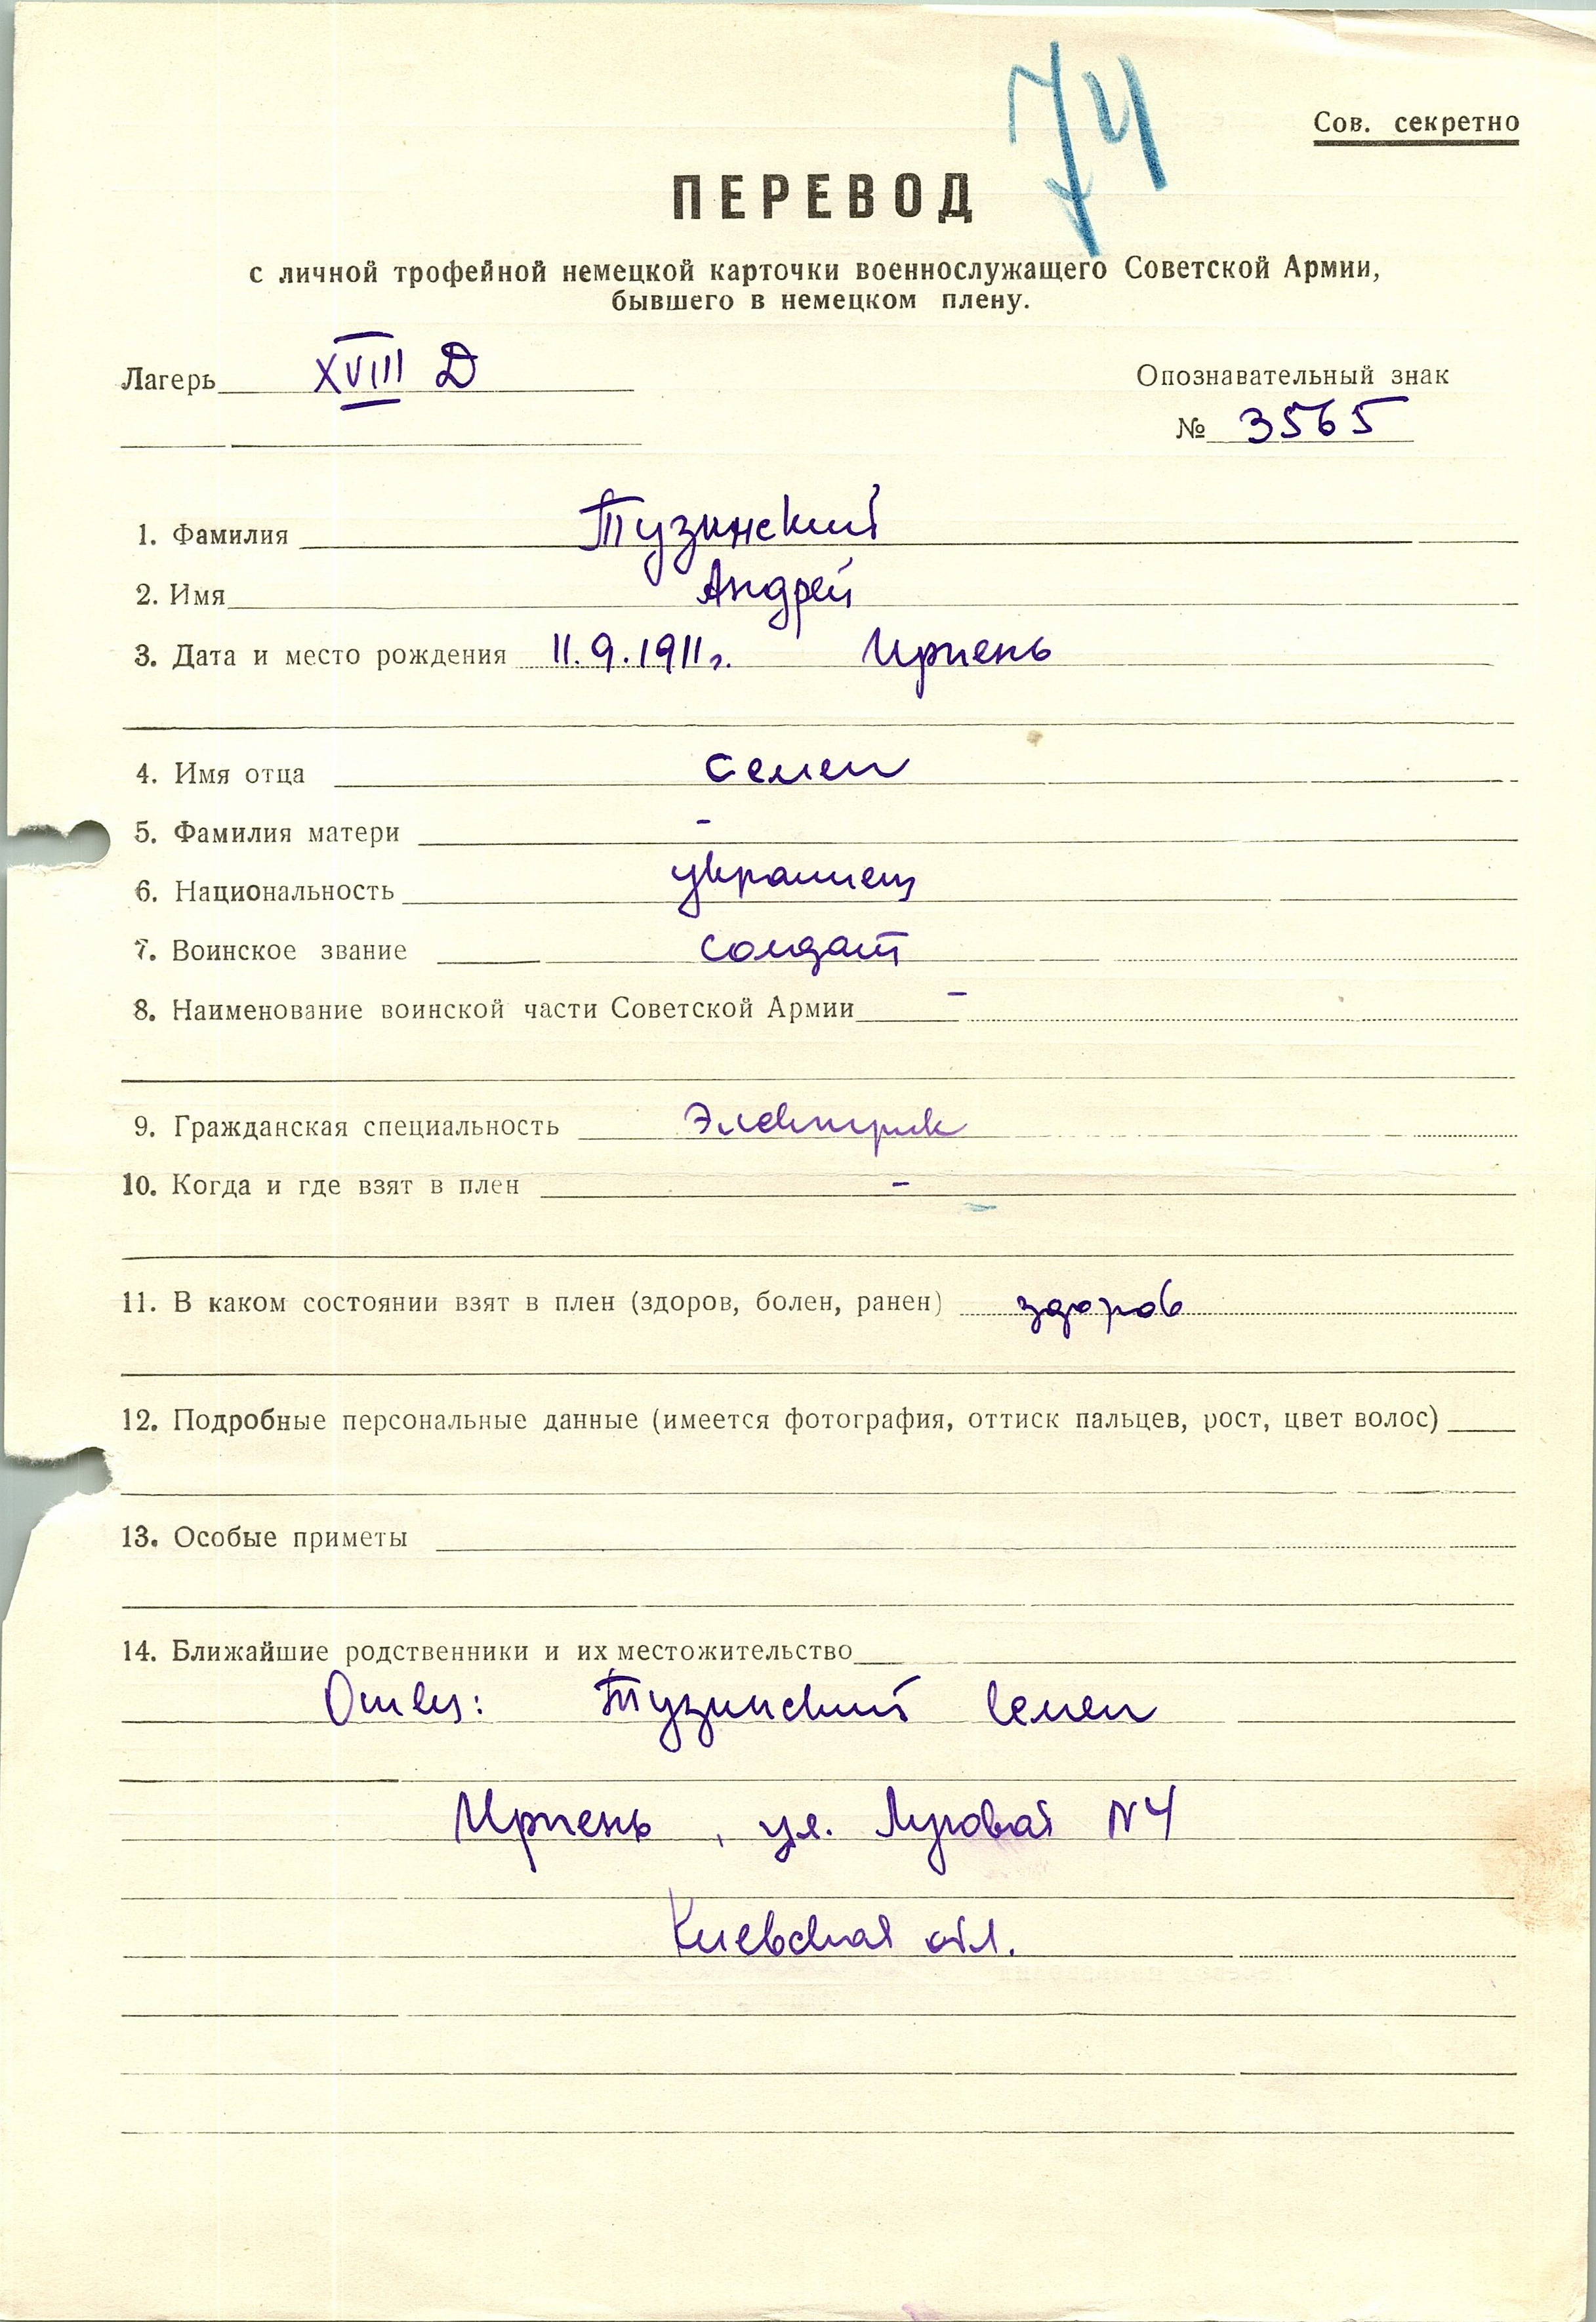 74
Сов. секретно
ПЕРЕВОД
с личной трофейной немецкой карточки военнослужащего Советской Армии,
бывшего в немецком плену.
Лагерь XVIII D
Опознавательный знак
№ 3565
1. Фамилия Тузинский
2. Имя Андрей
3. Дата и место рождения 11.9.1911г. Ирпень
4. Имя отца Семен
5. Фамилия матери -
6. Национальность украинец
7. Воинское звание солдат
8. Наименование воинской части Советской Армии -
9. Гражданская специальность Электрик
10. Когда и где взят в плен -
11. В каком состоянии взят в плен (здоров, болен, ранен) здоров
12. Подробные персональные данные (имеется фотография, оттиск пальцев, рост, цвет волос)
13. Особые приметы
14. Ближайшие родственники и их местожительство
Отец: Тузинский Семен
Ирпень, ул. Луговая N4
Киевская обл.